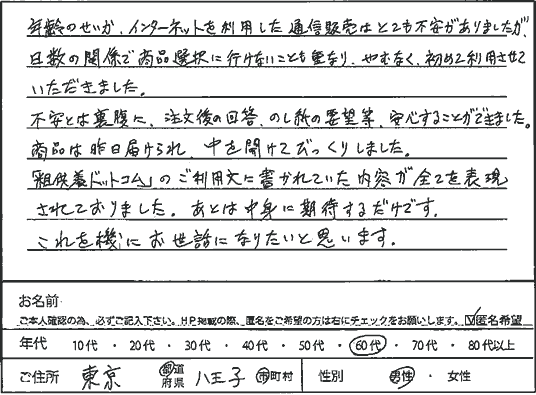 年齢のせいか、インターネットを利用した通信販売はとても不安がありましたが、
日数の関係で商品選択に行けないことも重なり、やむなく、初めて利用させて
いただきました。
不安とは裏腹に、注文後の回答、のし紙の要望等、安心することができました。
商品は昨日届けられ、中を開けてびっくりしました。
「粗供養ドットコム」のご利用文に書かれていた内容が全てを表現
されておりました。あとは中身に期待するだけです。
これを機にお世話になりたいと思います。
お名前
ご本人確認の為、必ずご記入下さい。HP掲載の際、匿名をご希望の方は右にチェックをお願いします。☑匿名希望
年代 10代 ・ 20代 ・ 30代 ・ 40代 ・ 50代 ・ 60代 ・ 70代 ・ 80代以上
ご住所 東京 都道府県 八王子 市町村 性別 男性 ・ 女性